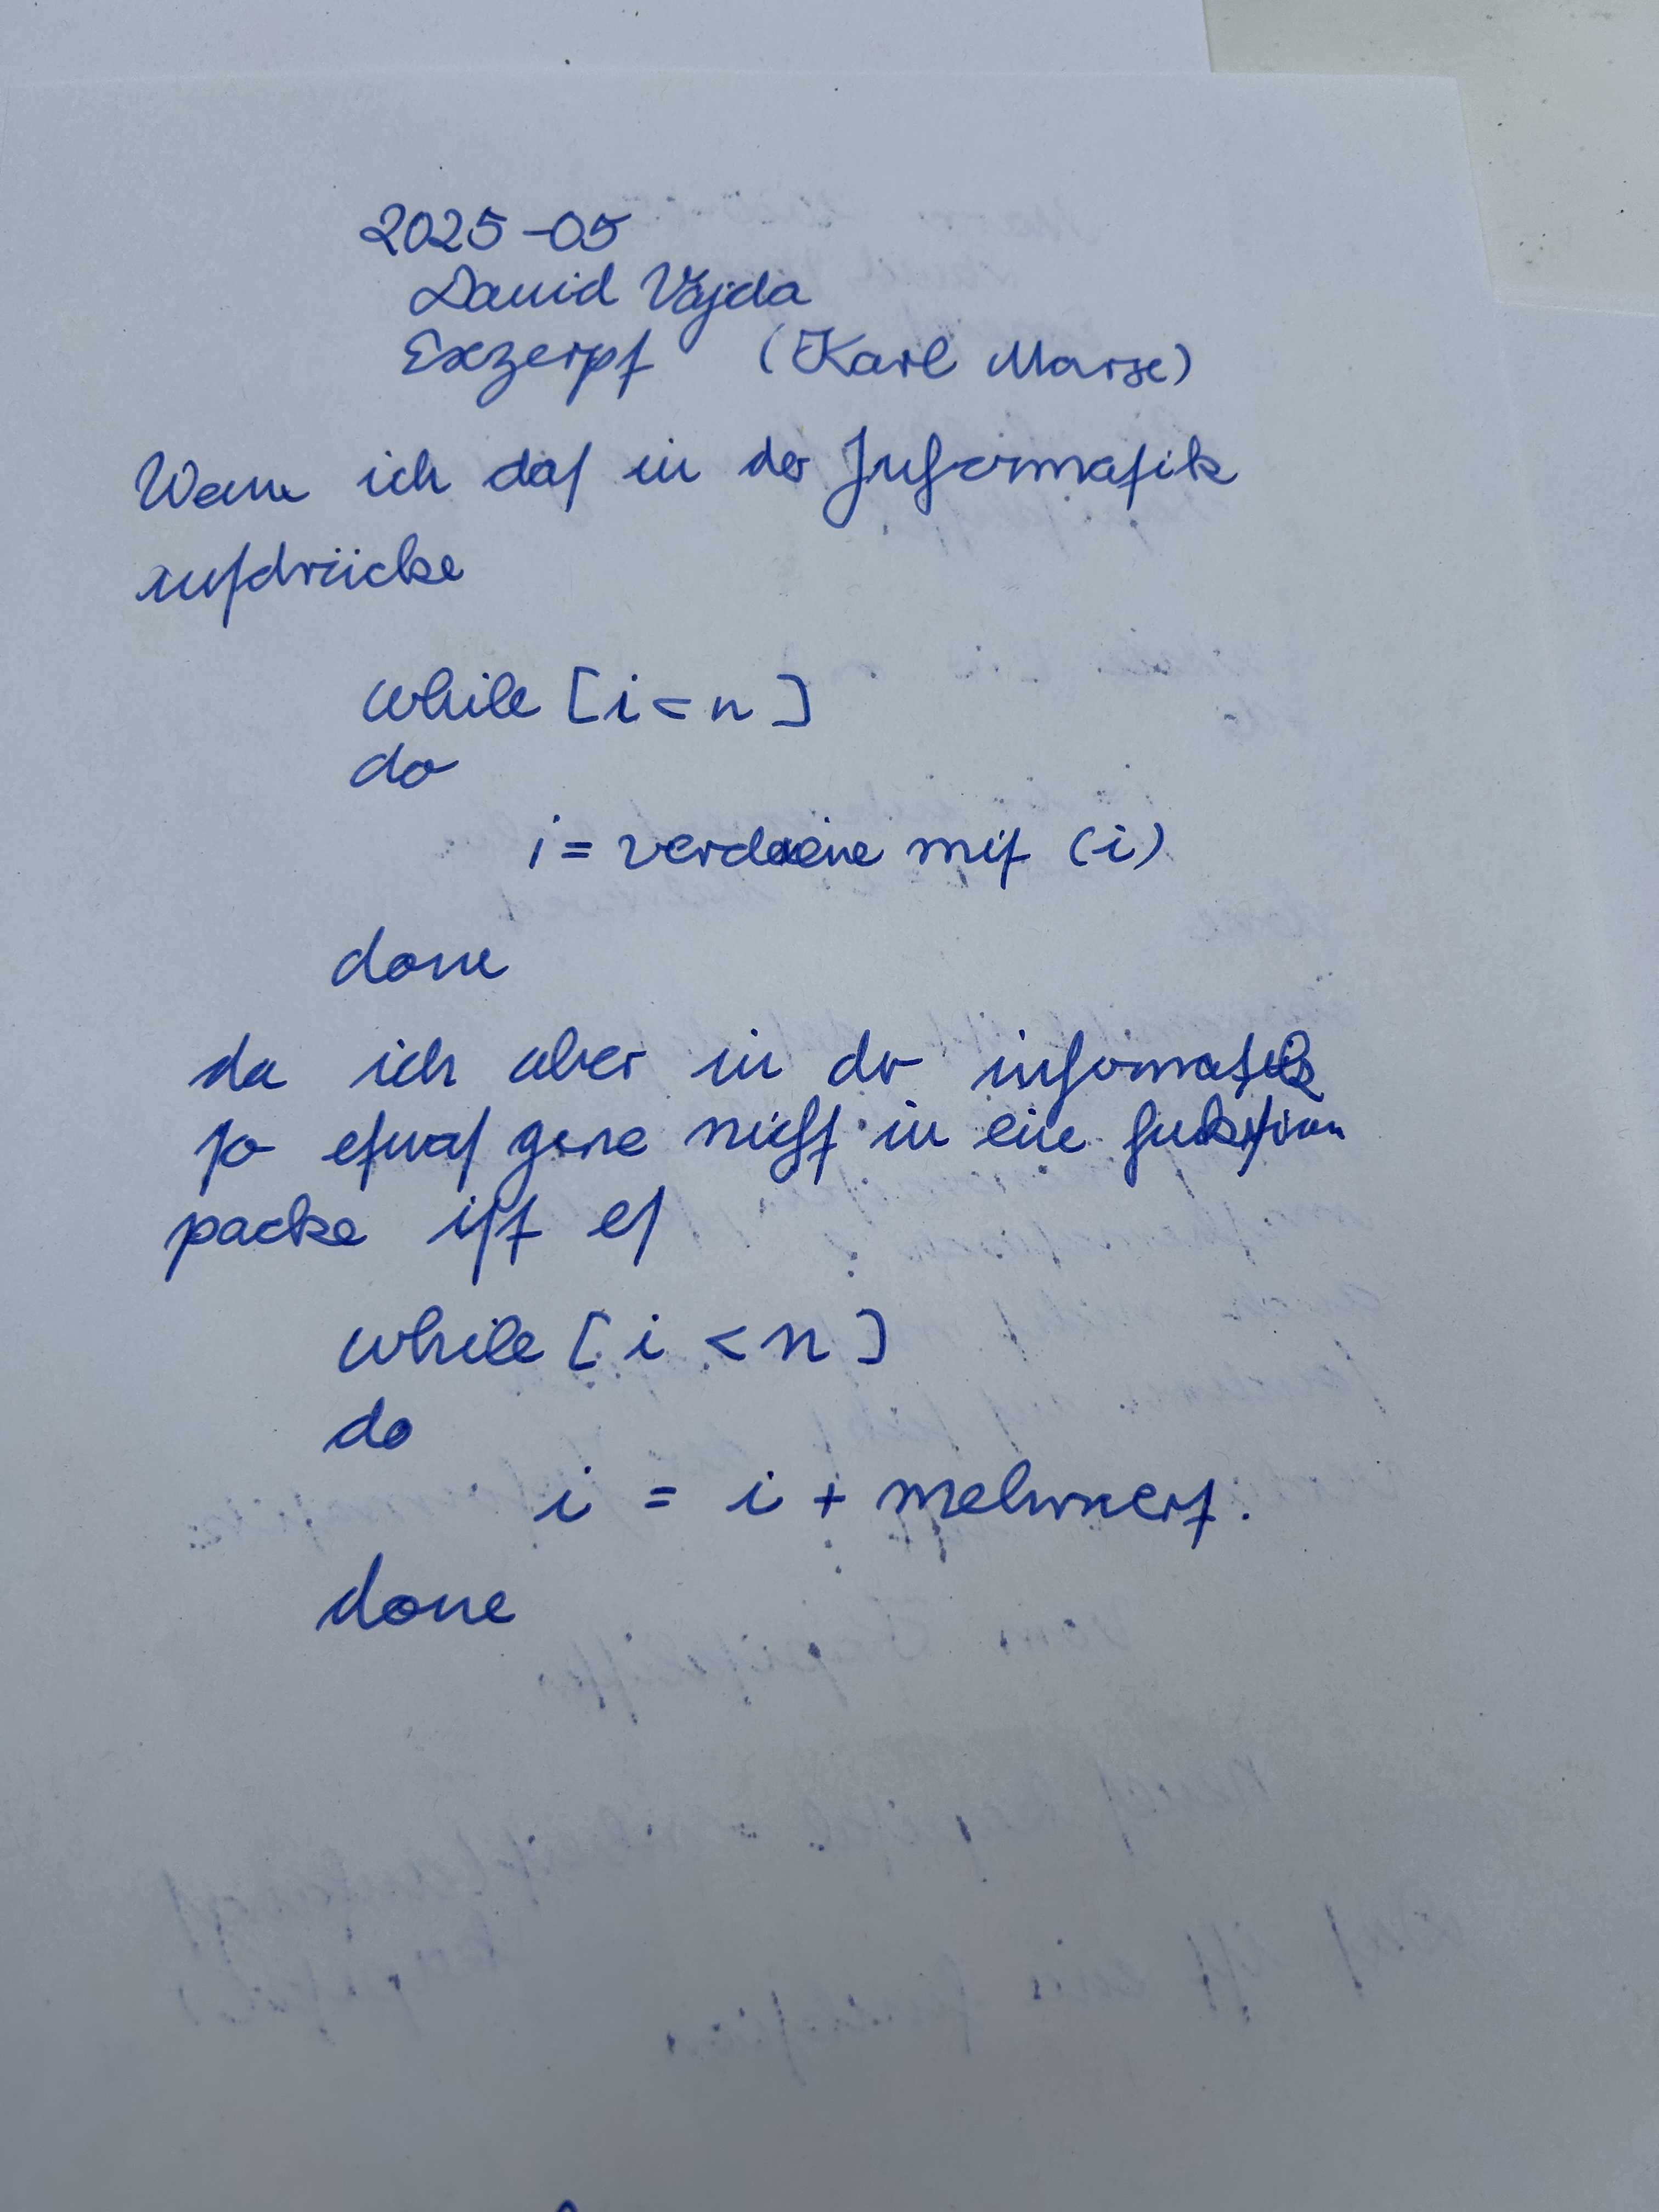 2025-05
David Vajda
Exzerpt (Karl Marx)
Wenn ich das in der Informatik
ausdrücke
while [i < n]
do
i = verdiene mit (i)
done
da ich aber in der informatik
so etwas gerne nicht in eine funktion
packe ist es
while [i < n]
do
i = i + mehrwert.
done